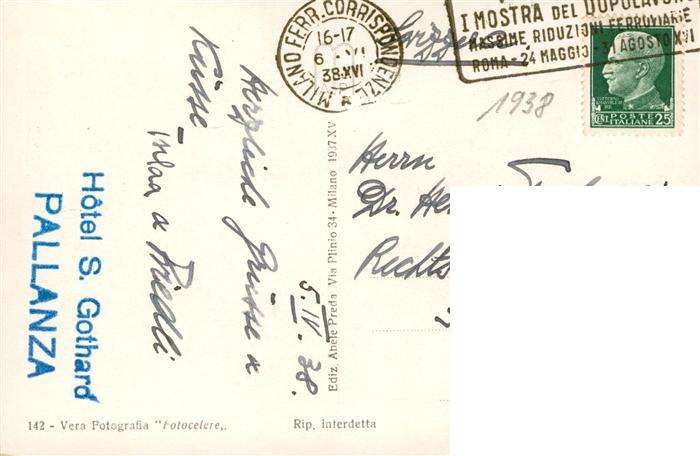 MILANO FERR. CORRISPONDENZE
16-17
6 · VI
38·XVI
I MOSTRA DEL DOPOLAVORO
MASSIME RIDUZIONI FERROVIARIE
ROMA - 24 MAGGIO - 31 AGOSTO XVI
POSTE
ITALIANE
CENT. 25
1938
Herrn
Dr.
Rechts
Herzliche Grüsse &
Küsse
5.IV.38.
Hôtel S. Gothard
PALLANZA
Ediz. Abele Preda Via Plinio 34 - Milano 1937 XV
142 - Vera Fotografia "Fotocelere„
Rip. interdetta